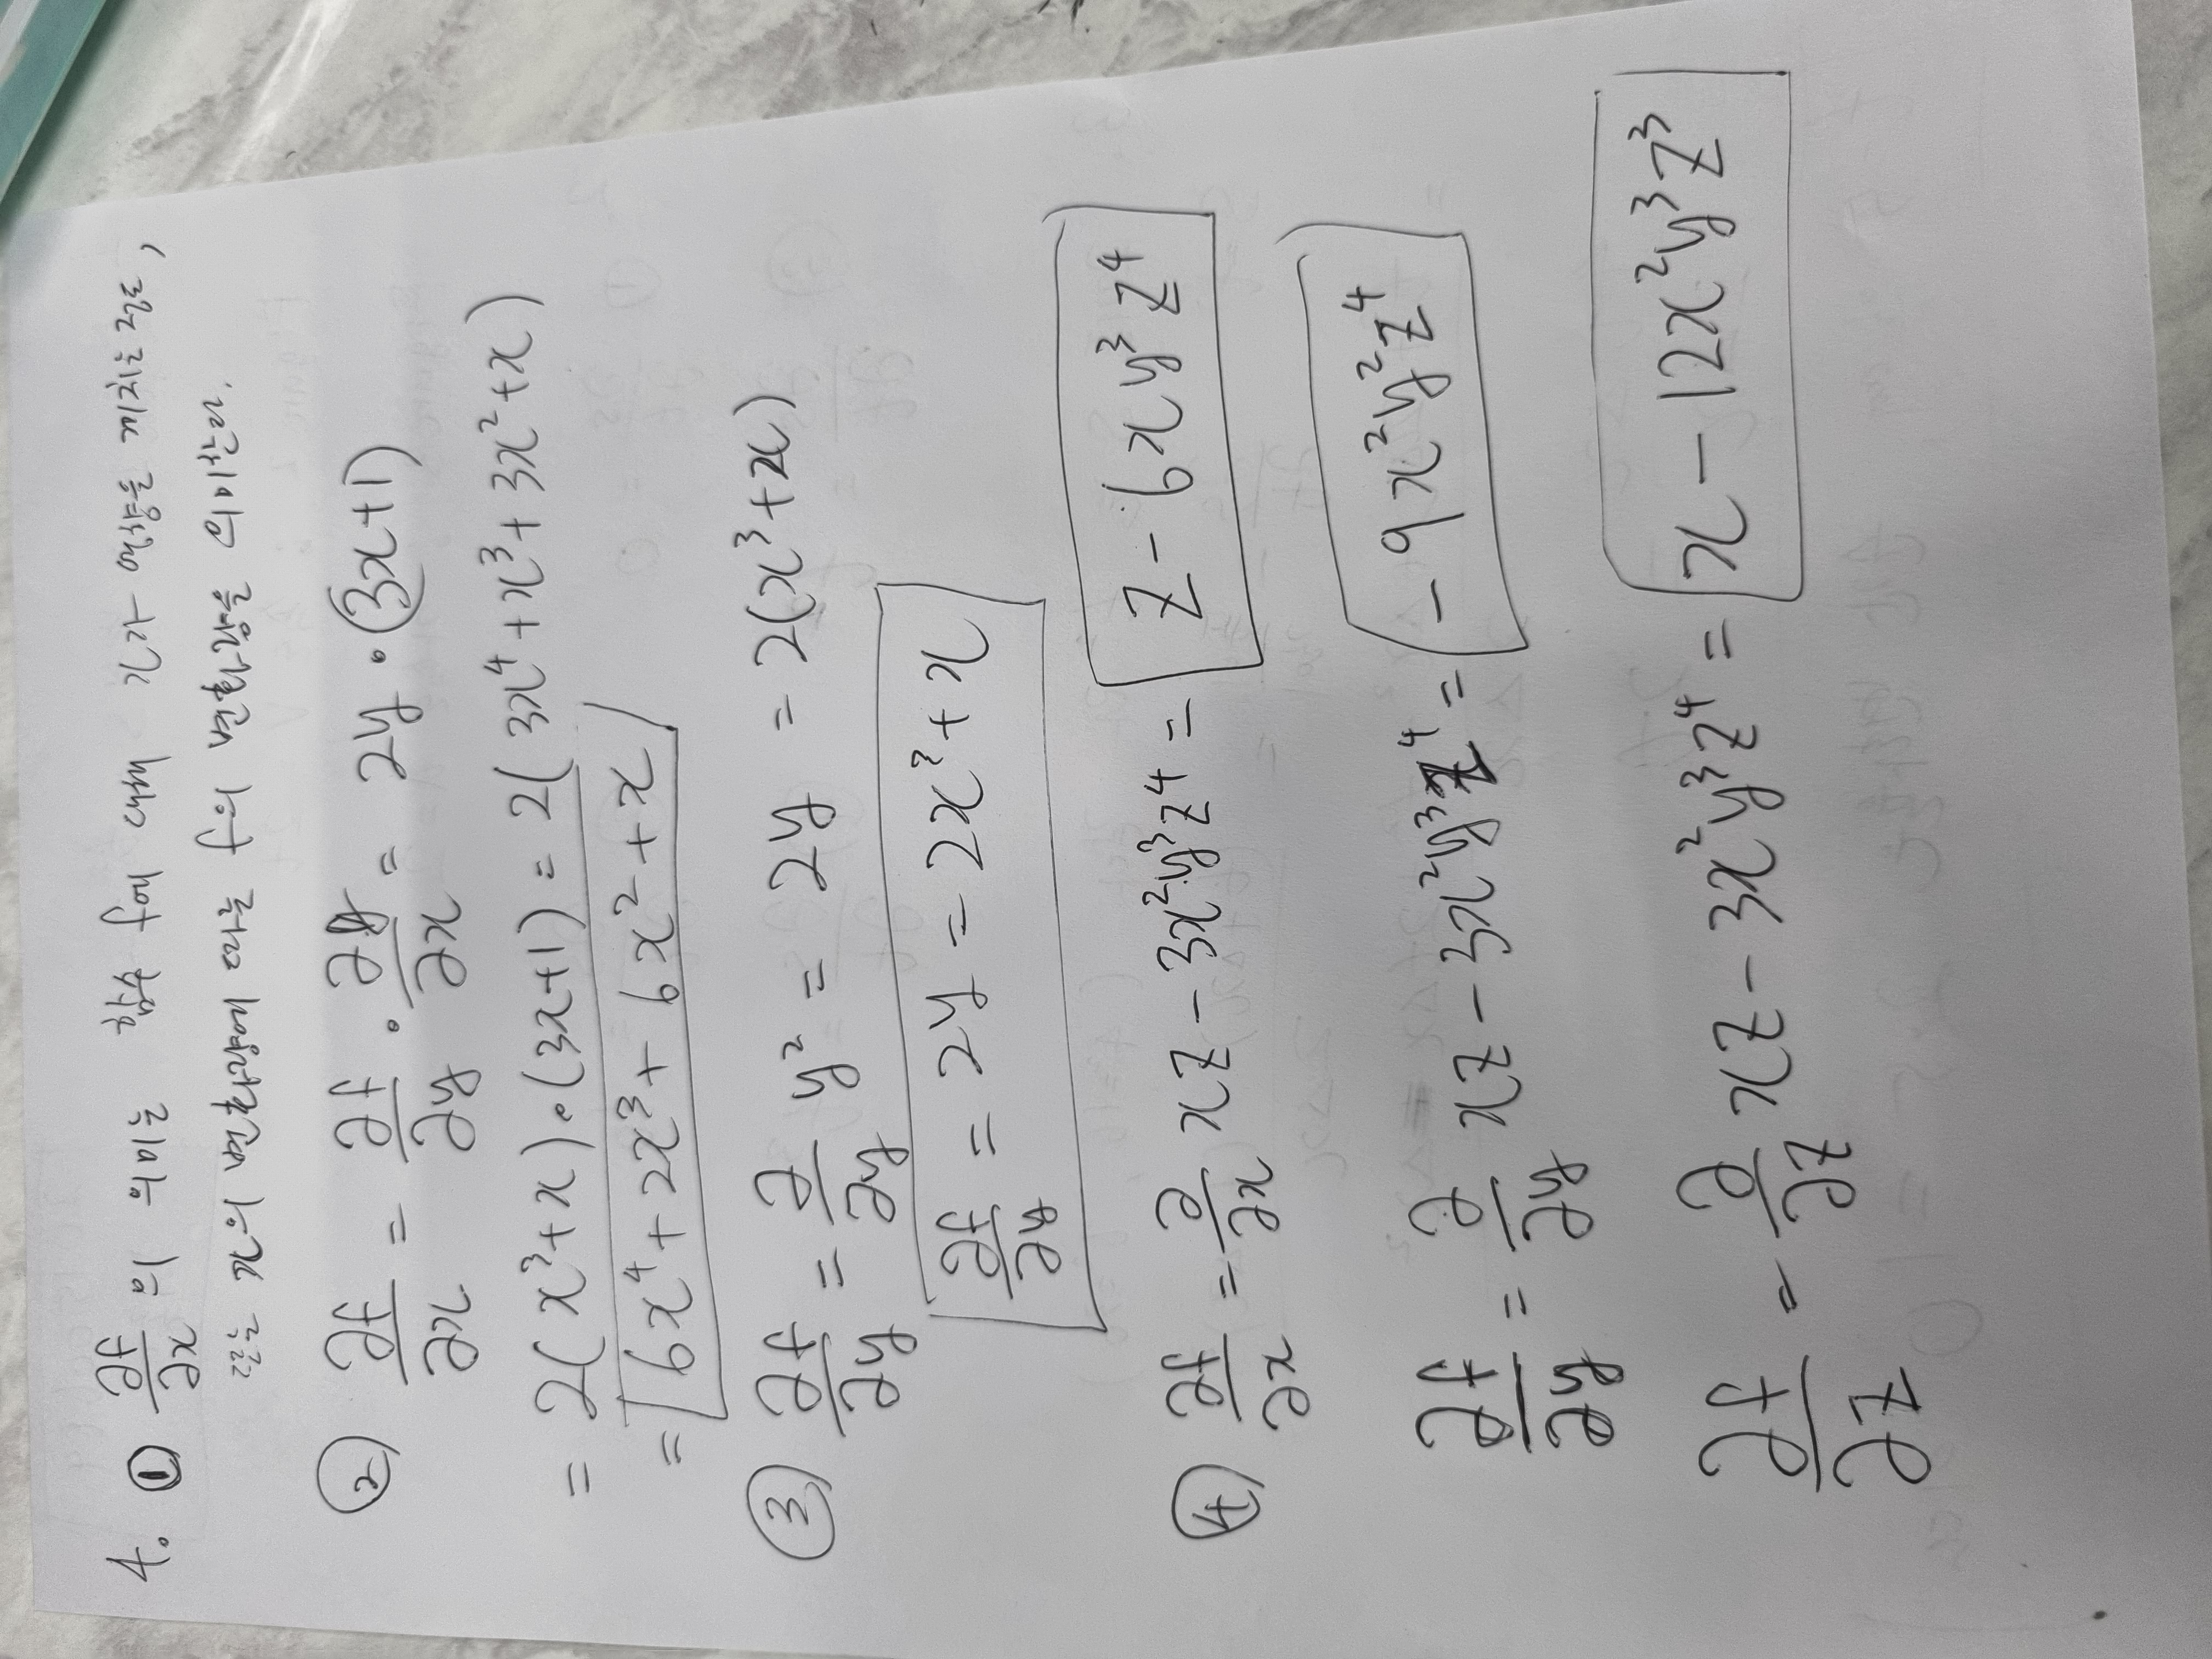 4. ① ∂f/∂x 의 의미는 함수 f에 대해 x가 영향을 끼치는 정도,
또는 x의 변화량에 따른 f의 변화량을 의미한다.
② ∂f/∂x = ∂f/∂y · ∂y/∂x = 2y · (3x+1)
= 2(x³+x)·(3x+1) = 2(3x⁴+x³+3x²+x)
= 6x⁴+2x³+6x²+x
③ ∂f/∂y = ∂/∂y y² = 2y = 2(x³+x)
∂f/∂y = 2y = 2x³+x
④ ∂f/∂x = ∂/∂x xz-3x²y³z⁴ = z-6xy³z⁴
∂f/∂y = ∂/∂y xz-3x²y³z⁴ = -9x²y²z⁴
∂f/∂z = ∂/∂z xz-3x²y³z⁴ = x-12x²y³z³